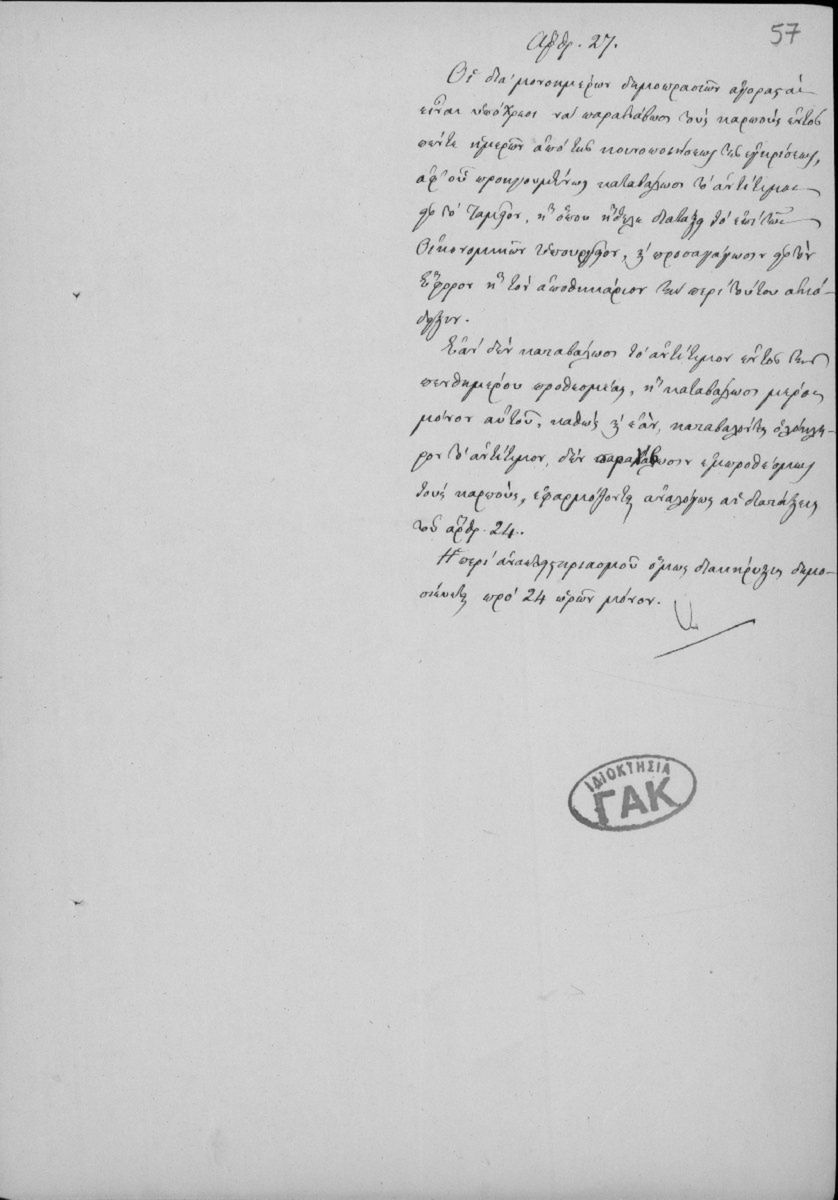 57
Άρθρ. 27.
Οἱ διὰ μονοημέρων δημοπρασιῶν ἀγορασταὶ
εἶναι ὑπόχρεοι νὰ παραλάβωσι τοὺς καρποὺς ἐντὸς
πέντε ἡμερῶν ἀπὸ τῆς κοινοποιήσεως τῆς ἐγκρίσεως,
ἀφ' οὗ προηγουμένως καταβάλωσι τὸ ἀντίτιμον
εἰς τὸ Ταμεῖον, ἢ ὅπου ἤθελε διατάξῃ τὸ ἐπὶ τῶν
Οἰκονομικῶν Ὑπουργεῖον, κ' προσαγάγωσιν εἰς τὸν
Ἔφορον ἢ τὸν ἀποθηκάριον τὴν περὶ τούτου ἀπό-
δειξιν.
Ἐὰν δὲν καταβάλωσι τὸ ἀντίτιμον ἐντὸς τῆς
πενθημέρου προθεσμίας, ἢ καταβάλωσι μέρος
μόνον αὐτοῦ, καθὼς κ' ἐὰν, καταβαλόντες ὁλόκλη-
ρον τὸ ἀντίτιμον, δὲν παραλάβωσιν ἐμπροθέσμως
τοὺς καρποὺς, ἐφαρμόζονται ἀναλόγως αἱ διατάξεις
τοῦ ἄρθρ. 24.
Ἡ περὶ ἀναπλειστηριασμοῦ ὅμως διακήρυξις δημο-
σιεύεται πρὸ 24 ὡρῶν μόνον.
ΙΔΙΟΚΤΗΣΙΑ
ΓΑΚ